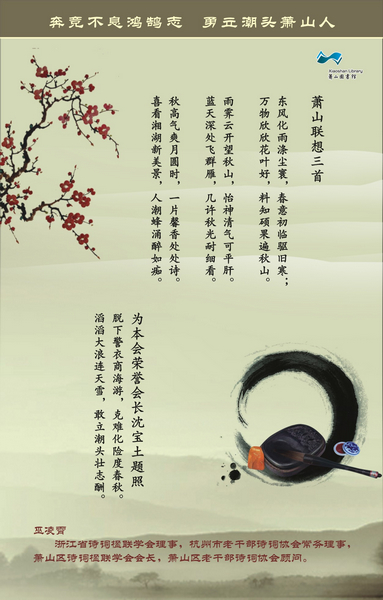 奔竞不息鸿鹄志 勇立潮头萧山人
Xiaoshan Library
萧山图书馆
萧山联想三首
东风化雨涤尘寰，春意初临驱旧寒；
万物欣欣花叶好，料知硕果遍秋山。
雨霁云开望秋山，怡神清气可平肝。
蓝天深处飞群雁，几许秋光耐细看。
秋高气爽月圆时，一片馨香处处诗。
喜看湘湖新美景，人潮蜂涌醉如痴。
为本会荣誉会长沈宝土题照
脱下警衣商海游，克难化险度春秋。
滔滔大浪连天雪，敢立潮头壮志酬。
巫凌霄
浙江省诗词楹联学会理事，杭州市老干部诗词协会常务理事，
萧山区诗词楹联学会会长，萧山区老干部诗词协会顾问。